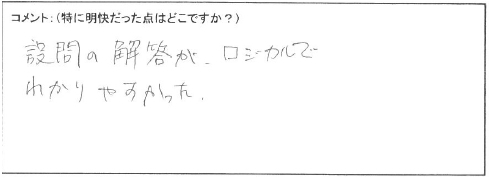 コメント：（特に明快だった点はどこですか？）
設問の解答が、ロジカルで
わかりやすかった。